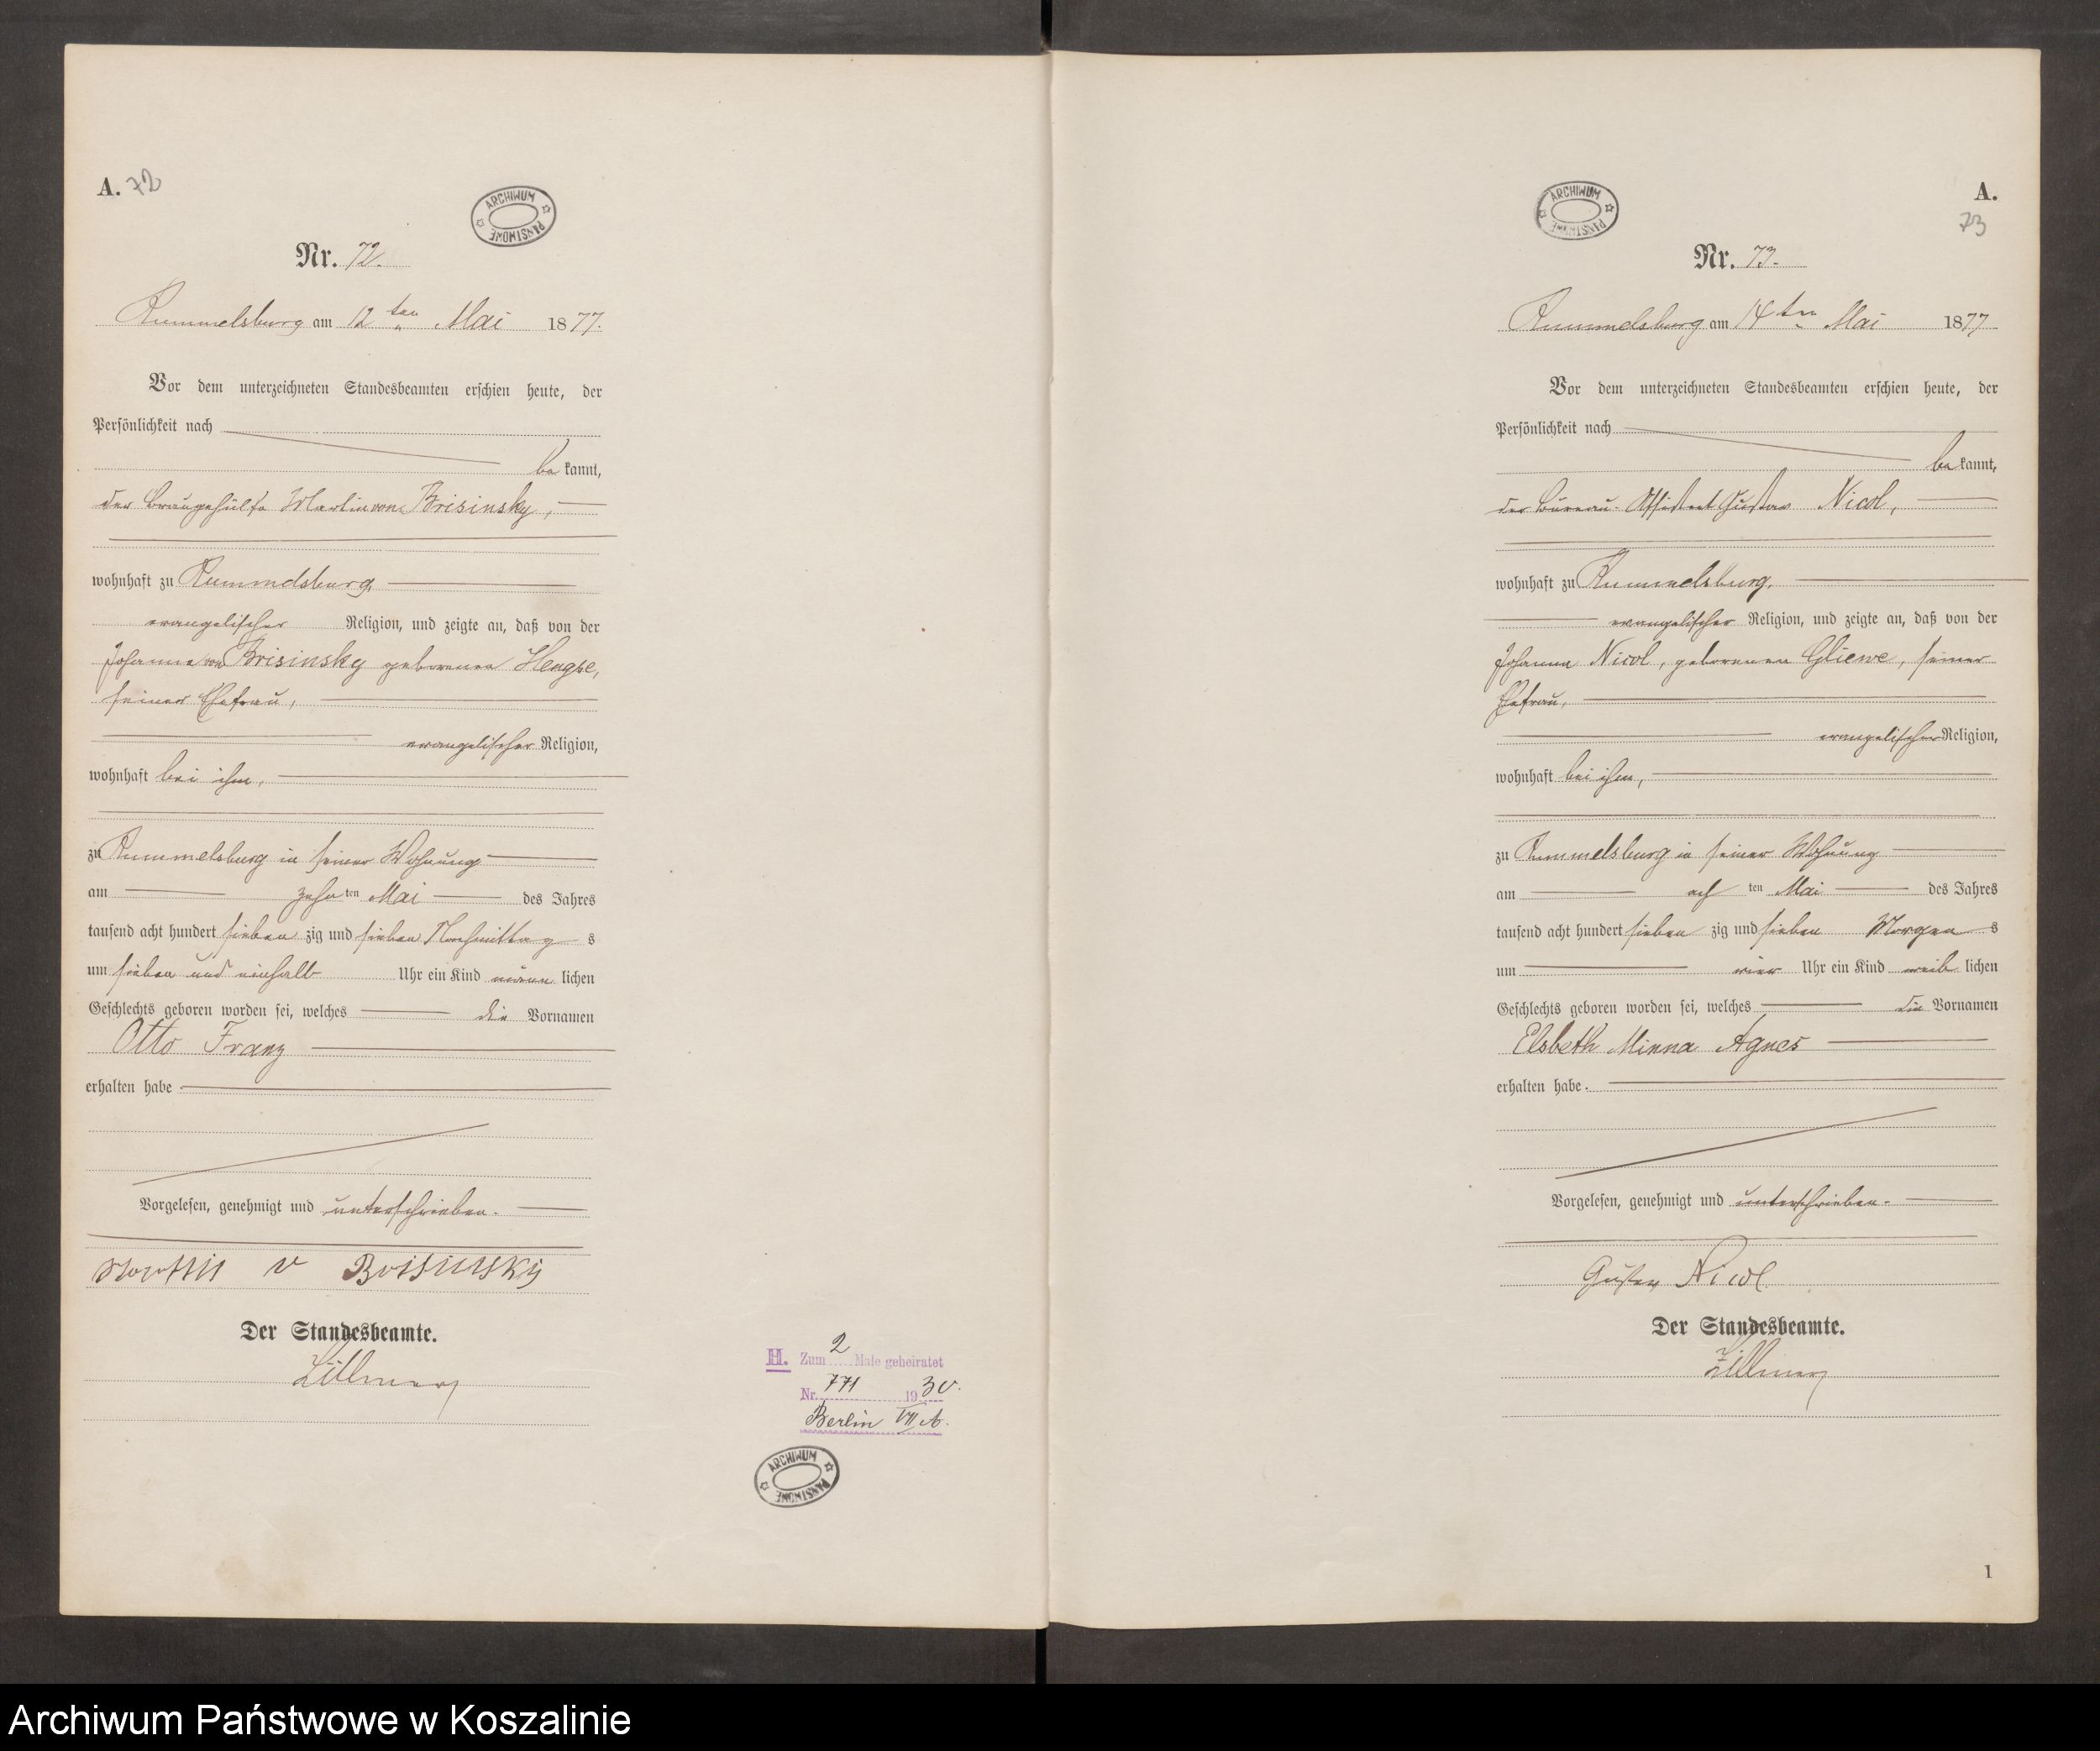 A. 72
ARCHIWUM PAŃSTWOWE
Nr. 72.
Rummelsburg am 12 ten Mai 1877.
Vor dem unterzeichneten Standesbeamten erschien heute, der
Persönlichkeit nach
be kannt,
der Braugehülfe Martin von Brisinsky,
wohnhaft zu Rummelsburg
evangelischer Religion, und zeigte an, daß von der
Johanna von Brisinsky geborenen
seiner Ehefrau,
evangelischer Religion,
wohnhaft bei ihm,
zu Rummelsburg in seiner Wohnung
am zehn ten Mai des Jahres
tausend acht hundert sieben zig und sieben Nachmittag s
um sieben und einhalb Uhr ein Kind männ lichen
Geschlechts geboren worden sei, welches die Vornamen
Otto Franz
erhalten habe
Vorgelesen, genehmigt und unterschrieben.
Martin v Brisinsky
Der Standesbeamte.
Zillmer
H. Zum 2 Male geheiratet
Nr. 771 1930.
Berlin VII A.
ARCHIWUM PAŃSTWOWE
ARCHIWUM PAŃSTWOWE
A.
73
Nr. 73.
Rummelsburg am 14 ten Mai 1877
Vor dem unterzeichneten Standesbeamten erschien heute, der
Persönlichkeit nach
be kannt,
der Büreau-Assistent Gustav Nicol,
wohnhaft zu Rummelsburg,
evangelischer Religion, und zeigte an, daß von der
Johanna Nicol, geborenen Gliewe, seiner
Ehefrau,
evangelischer Religion,
wohnhaft bei ihm,
zu Rummelsburg in seiner Wohnung
am ach ten Mai des Jahres
tausend acht hundert sieben zig und sieben Morgen s
um vier Uhr ein Kind weib lichen
Geschlechts geboren worden sei, welches die Vornamen
Elsbeth Minna Agnes
erhalten habe
Vorgelesen, genehmigt und unterschrieben.
Gustav Nicol
Der Standesbeamte.
Zillmer
1
Archiwum Państwowe w Koszalinie